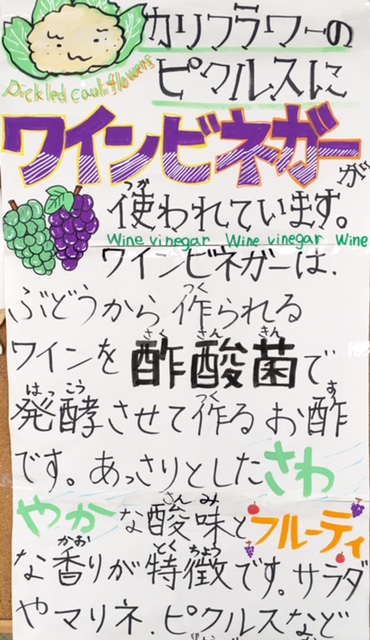 カリフラワーの
Pickled cauliflowers
ピクルスに
ワインビネガーが
つか
使われています。
Wine vinegar Wine vinegar Wine
ワインビネガーは、
つく
ぶどうから作られる
さく さん きん
ワインを酢酸菌で
はっこう つく す
発酵させて作るお酢
です。あっさりとしたさわ
さん み
やかな酸味とフルーティ
かお とく ちょう
な香りが特徴です。サラダ
やマリネ、ピクルスなど